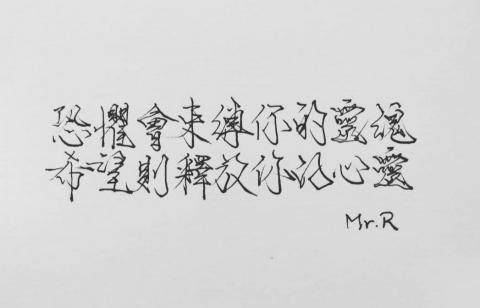 恐懼會束縛你的靈魂
希望則釋放你的心靈
Mr.R